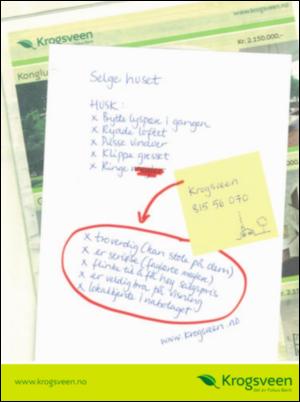 Krogsveen
www.krogsveen.no
Kr. 2.150.000,-
Selge huset
HUSK:
x Bytte lyspære i gangen
x Rydde loftet
x Pusse vinduer
x Klippe gresset
x Ringe
Krogsveen
815 56 070
x troverdig (kan stole på dem)
x er seriøse (faglærte meglere)
x flinke til å få høy salgspris
x er veldig bra på visning
x lokalkjente i nabolaget
www.krogsveen.no
www.krogsveen.no
Krogsveen